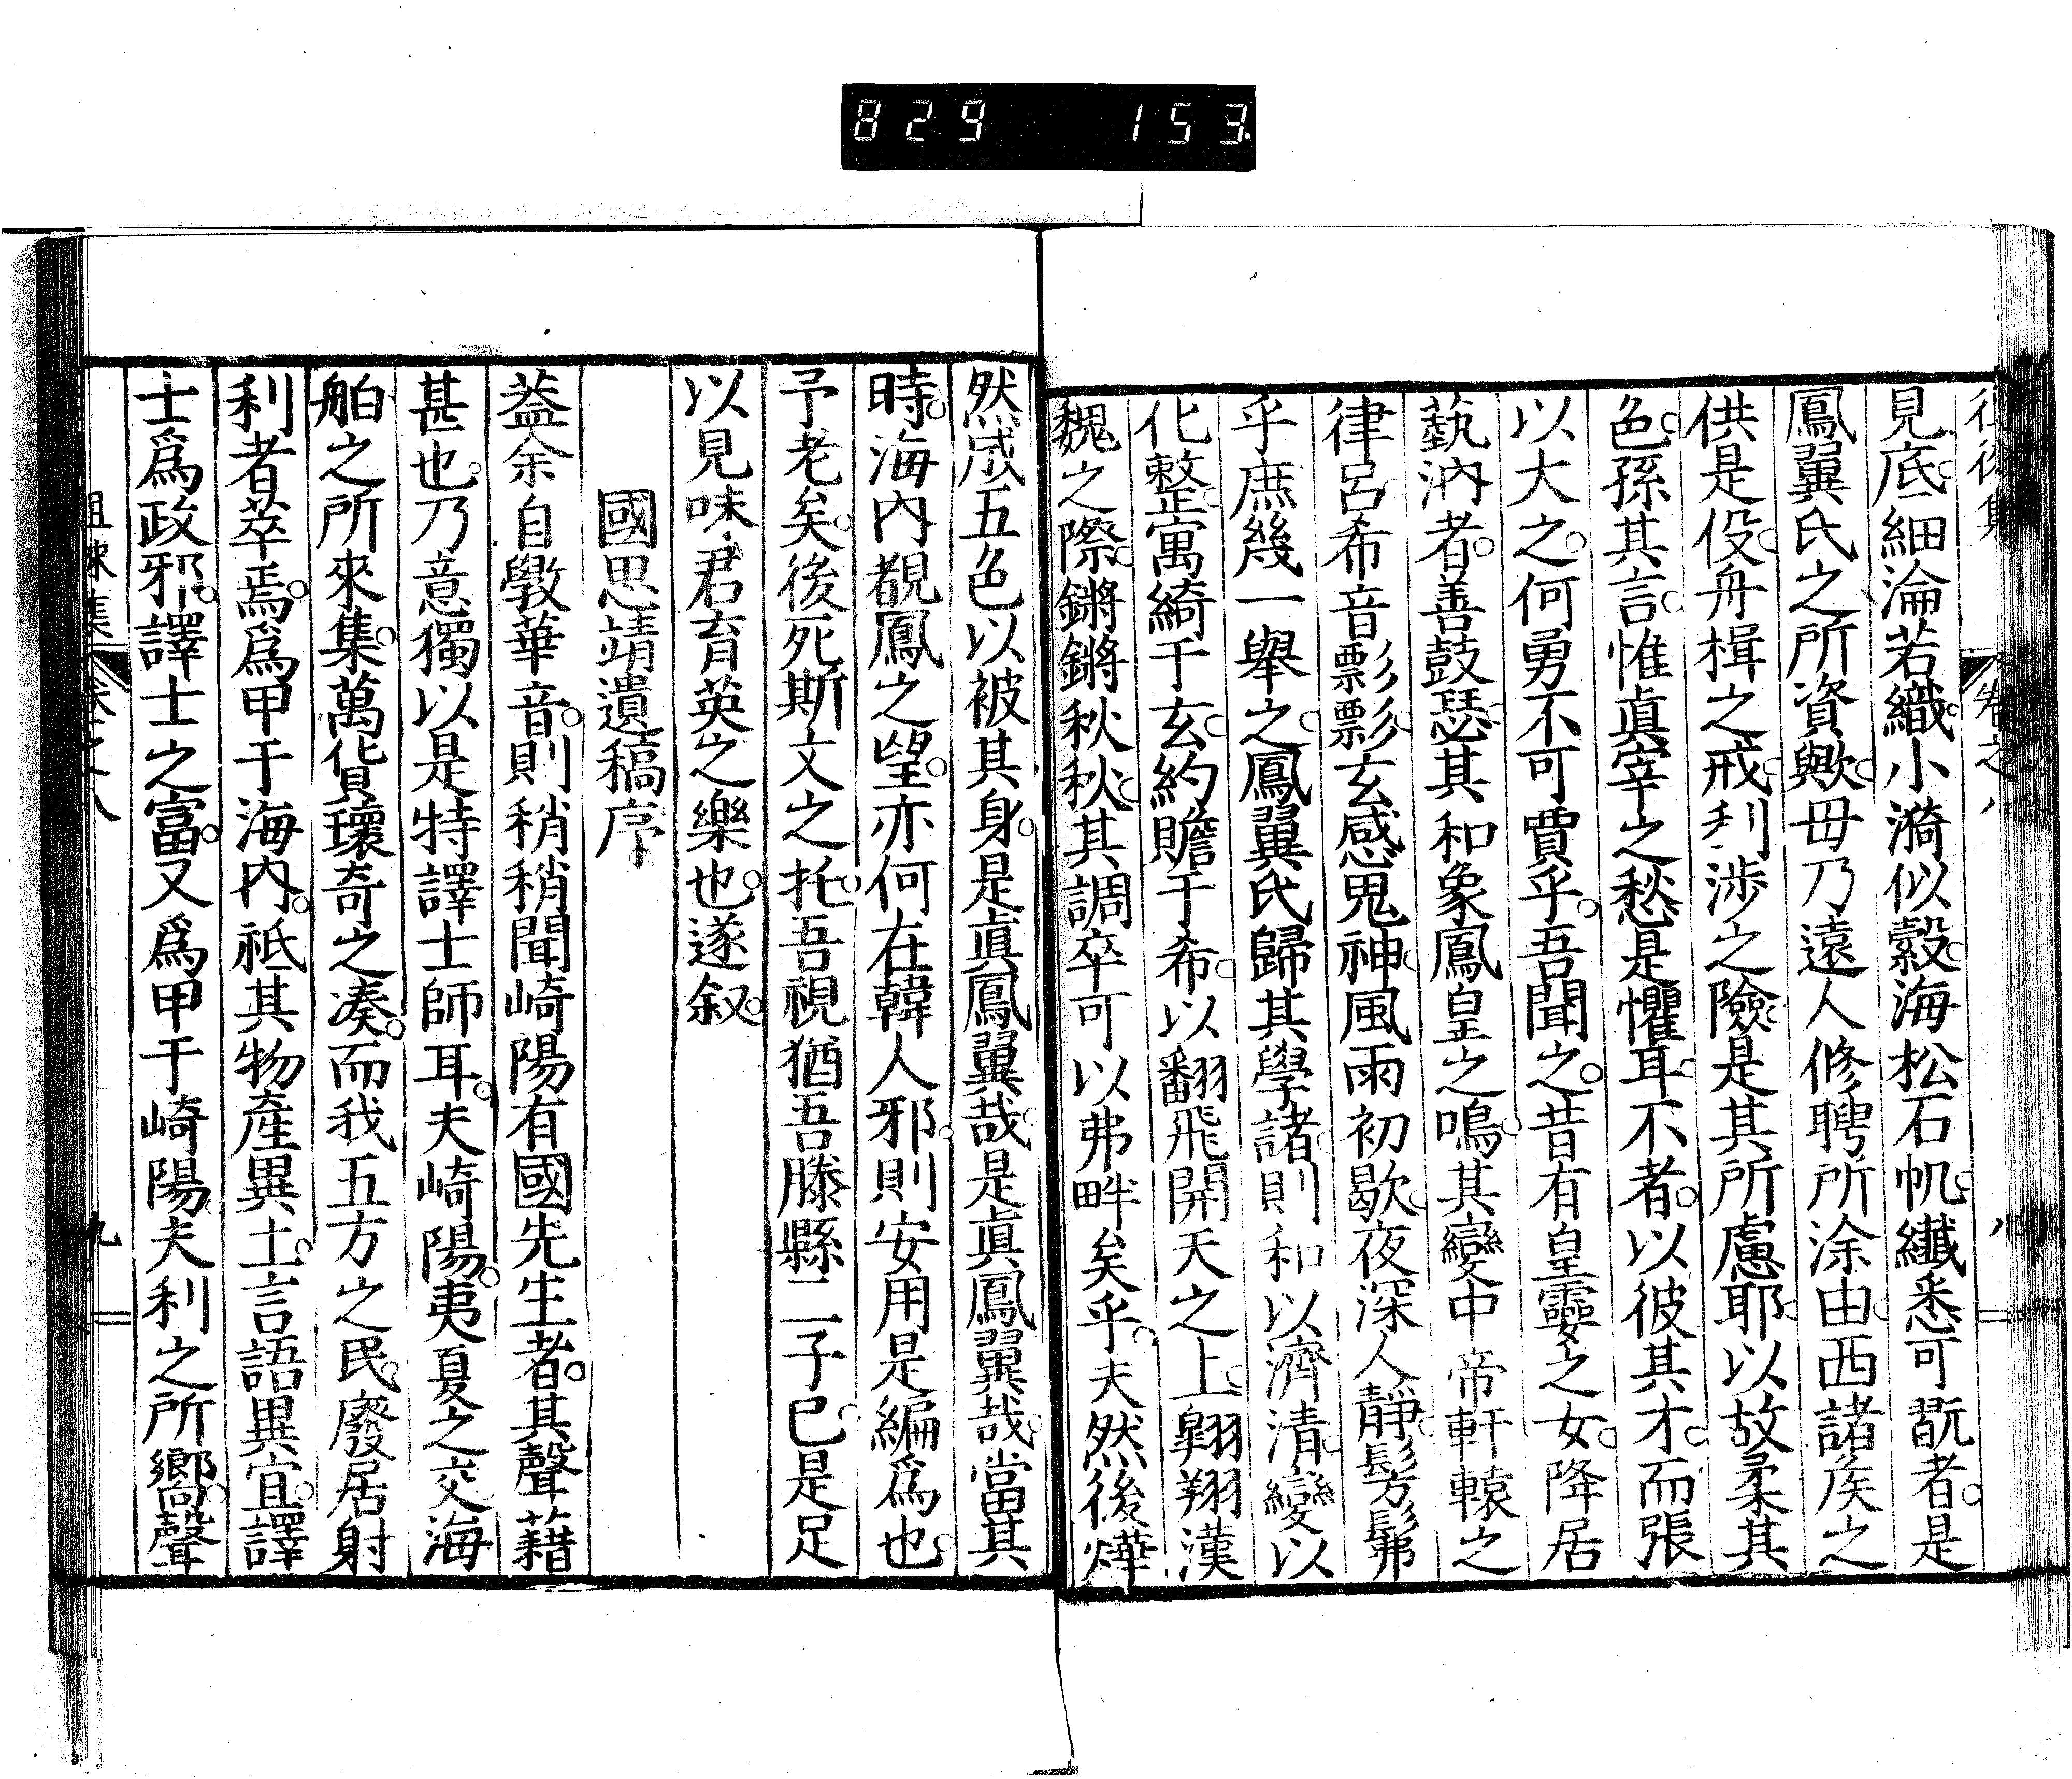 829 153
見底。細淪若織。小漪似縠。海松石帆。纖悉可翫者。是
鳳翼氏之所資歟。毋乃遠人修聘所涂由。西諸侯之
供是役。舟楫之戒。利涉之險。是其所慮耶。以故柔其
色。孫其言。惟眞宰之愁是懼耳。不者。以彼其才。而張
以大之。何勇不可賈乎。吾聞之。昔有皇靈之女。降居
藝汭者。善鼓瑟。其和象鳳皇之鳴。其變中帝軒轅之
律呂。希音影影。玄感鬼神。風雨初歇。夜深人靜。髣髴
乎庶幾一舉之。鳳翼氏歸其學諸。則和以濟清。變以
化整。寓綺于玄。約贍于希。以翻飛開天之上。翺翔漢
魏之際。鏘鏘秋秋。其調卒可以弗畔矣乎。夫然後燁
然成五色以被其身。是眞鳳翼哉。是眞鳳翼哉。當其
時。海內覩鳳之望。亦何在韓人邪。則安用是編爲也。
予老矣。後死斯文之托。吾視猶吾滕縣二子已。是足
以見味君育英之樂也。遂叙。
國思靖遺稿序
葢余自斆華音。則稍稍聞崎陽有國先生者。其聲藉
甚也。乃意獨以是特譯士師耳。夫崎陽。夷夏之交。海
舶之所來集。萬貨瓌奇之湊。而我五方之民。廢居射
利者萃焉。爲甲于海內。祇其物產異土。言語異宜。譯
士爲政邪。譯士之富。又爲甲于崎陽。夫利之所嚮。聲
徂徠集 卷之八 八
徂徠集 卷之八 九